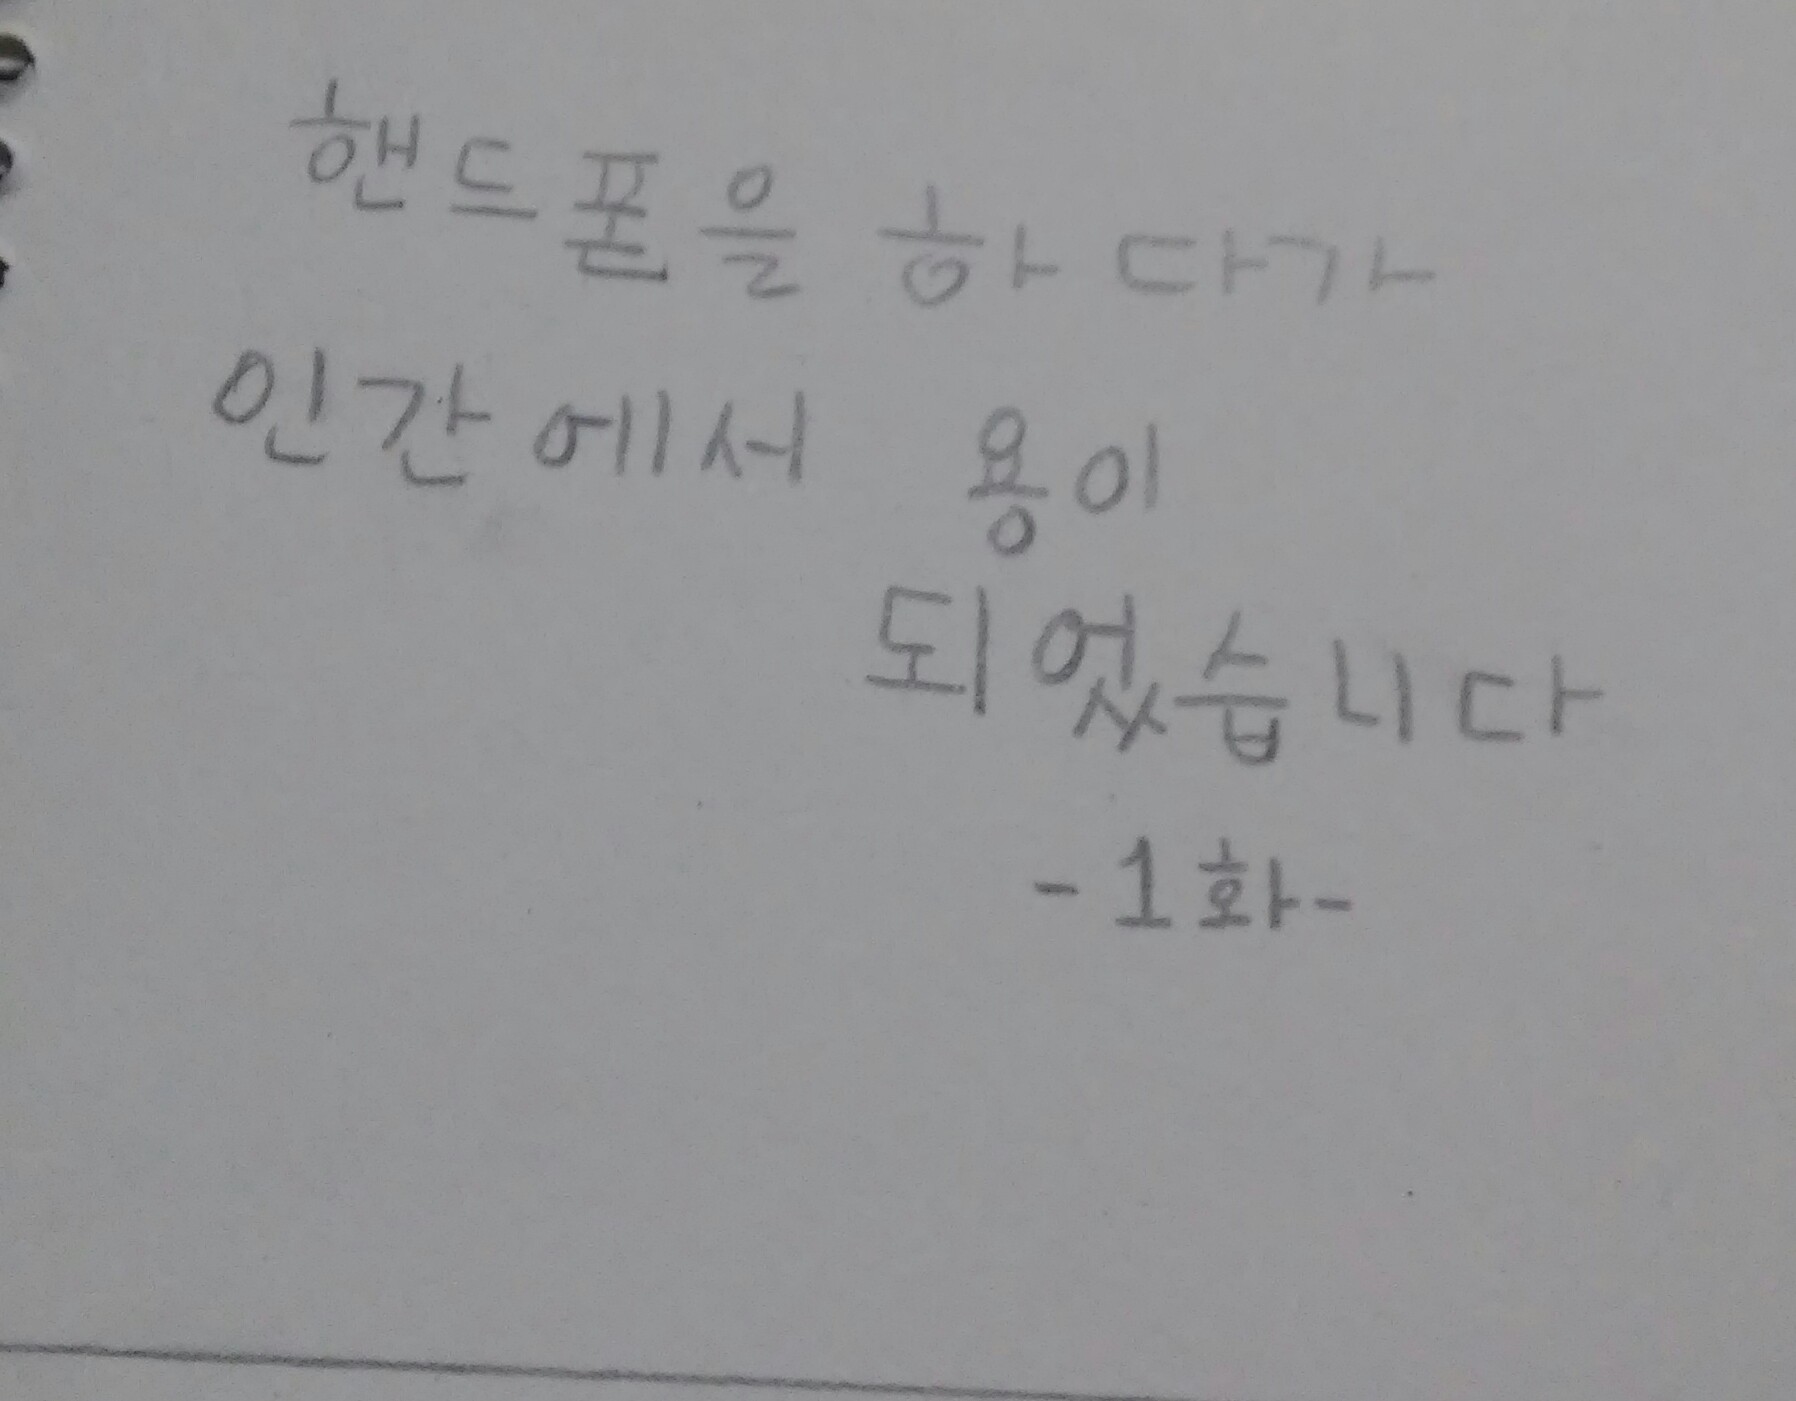 핸드폰을 하다가
인간에서 용이
되었습니다
-1화-